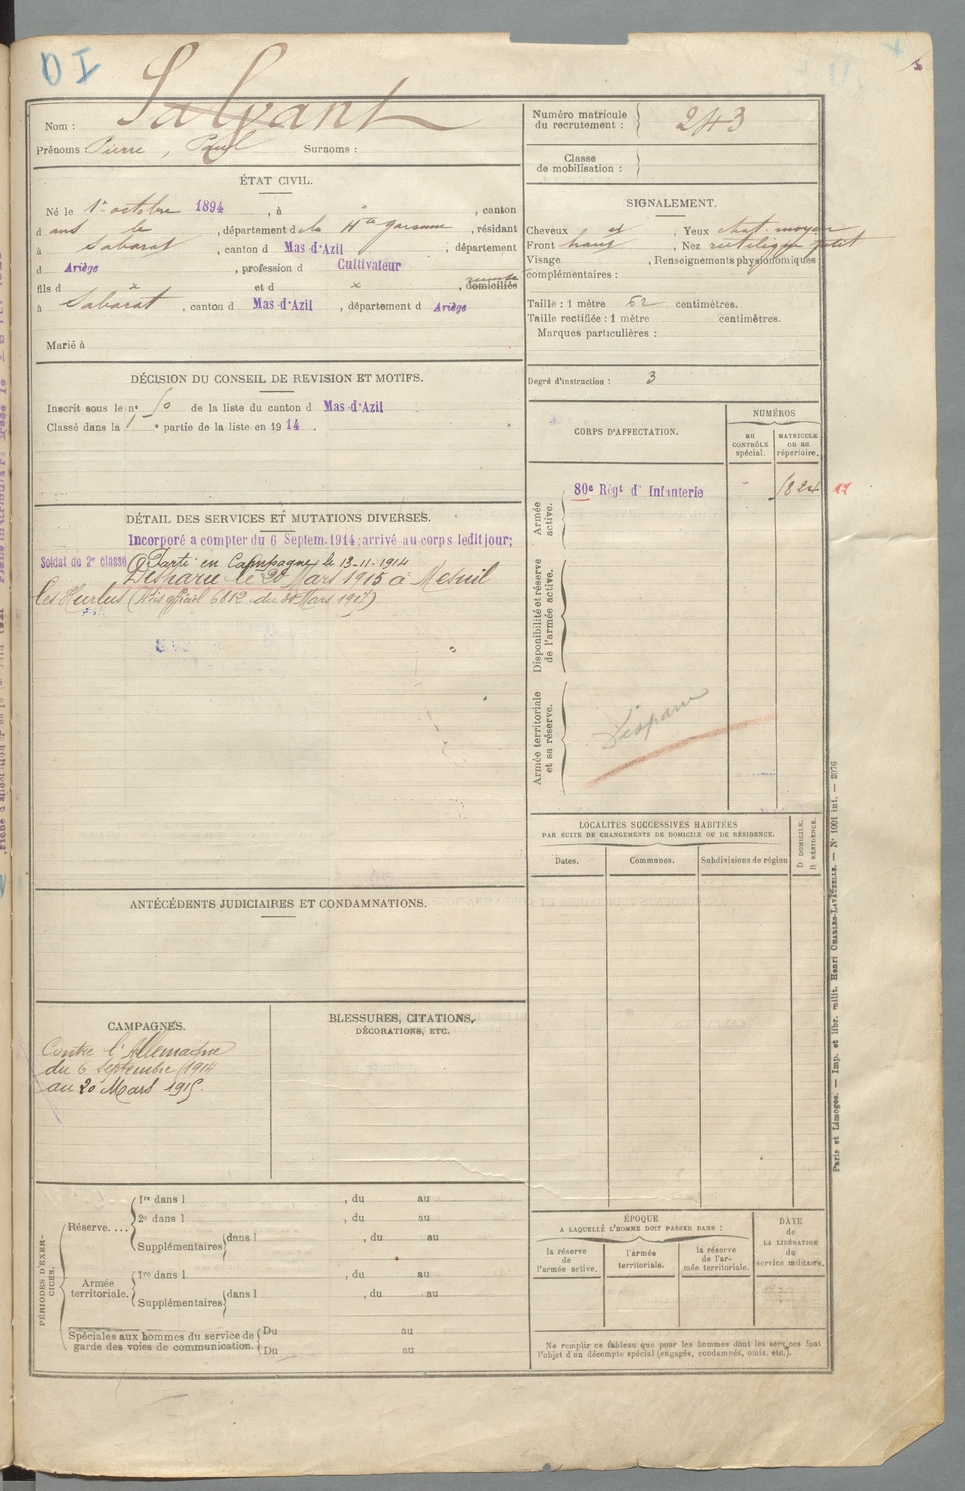 Nom : Salvant
Prénoms : Pierre, Paul Surnoms :
Numéro matricule du recrutement : 243
Classe de mobilisation :
ÉTAT CIVIL.
Né le 1er octobre 1894, à " , canton
d ans le , département de la Hte garonne, résidant
à Sabarat, canton d Mas-d'Azil, département
d Ariège, profession d Cultivateur
fils d x et d x , domiciliés
à Sabarat, canton d Mas-d'Azil, département d Ariège
Marié à
SIGNALEMENT.
Cheveux et , Yeux chat. moyen
Front haut , Nez rectiligne petit
Visage , Renseignements physionomiques
complémentaires :
Taille : 1 mètre 62 centimètres.
Taille rectifiée : 1 mètre centimètres.
Marques particulières :
Degré d'instruction : 3
DÉCISION DU CONSEIL DE REVISION ET MOTIFS.
Inscrit sous le no 50 de la liste du canton d Mas-d'Azil
Classé dans la 1 e partie de la liste en 1914.
CORPS D'AFFECTATION.
NUMÉROS
au CONTRÔLE spécial.
MATRICULE ou au répertoire.
Armée active.
80e Régt d'Infanterie
Disponibilité et réserve de l'armée active.
Armée territoriale et sa réserve.
Disparu
DÉTAIL DES SERVICES ET MUTATIONS DIVERSES.
Incorporé à compter du 6 Septem. 1914; arrivé au corps ledit jour;
Soldat de 2e classe Parti en Campagne le 13-11-1914
Disparu le 20 Mars 1915 à Mesnil
les Hurlus (Avis officiel 6812 du 30 Mars 1917)
LOCALITÉS SUCCESSIVES HABITÉES
PAR SUITE DE CHANGEMENTS DE DOMICILE OU DE RÉSIDENCE.
Dates.
Communes.
Subdivisions de région
D DOMICILE.
R RÉSIDENCE.
ANTÉCÉDENTS JUDICIAIRES ET CONDAMNATIONS.
CAMPAGNES.
Contre l'Allemagne
du 6 Septembre 1914
au 20 Mars 1915.
BLESSURES, CITATIONS,
DÉCORATIONS, ETC.
PÉRIODES D'EXERCICES.
Réserve....
1re dans l , du au
2e dans l , du au
Supplémentaires dans l , du au
Armée territoriale.
1re dans l , du au
Supplémentaires dans l , du au
Spéciales aux hommes du service de garde des voies de communication.
Du au
Du au
ÉPOQUE
A LAQUELLE L'HOMME DOIT PASSER DANS :
la réserve de l'armée active.
l'armée territoriale.
la réserve de l'armée territoriale.
DATE de LA LIBÉRATION du service militaire.
Ne remplir ce tableau que pour les hommes dont les services font
l'objet d'un décompte spécial (engagés, condamnés, omis, etc.).
Paris et Limoges. — Imp. et libr. milit. Henri CHARLES-LAVAUZELLE. — No 1001 int. — 2076